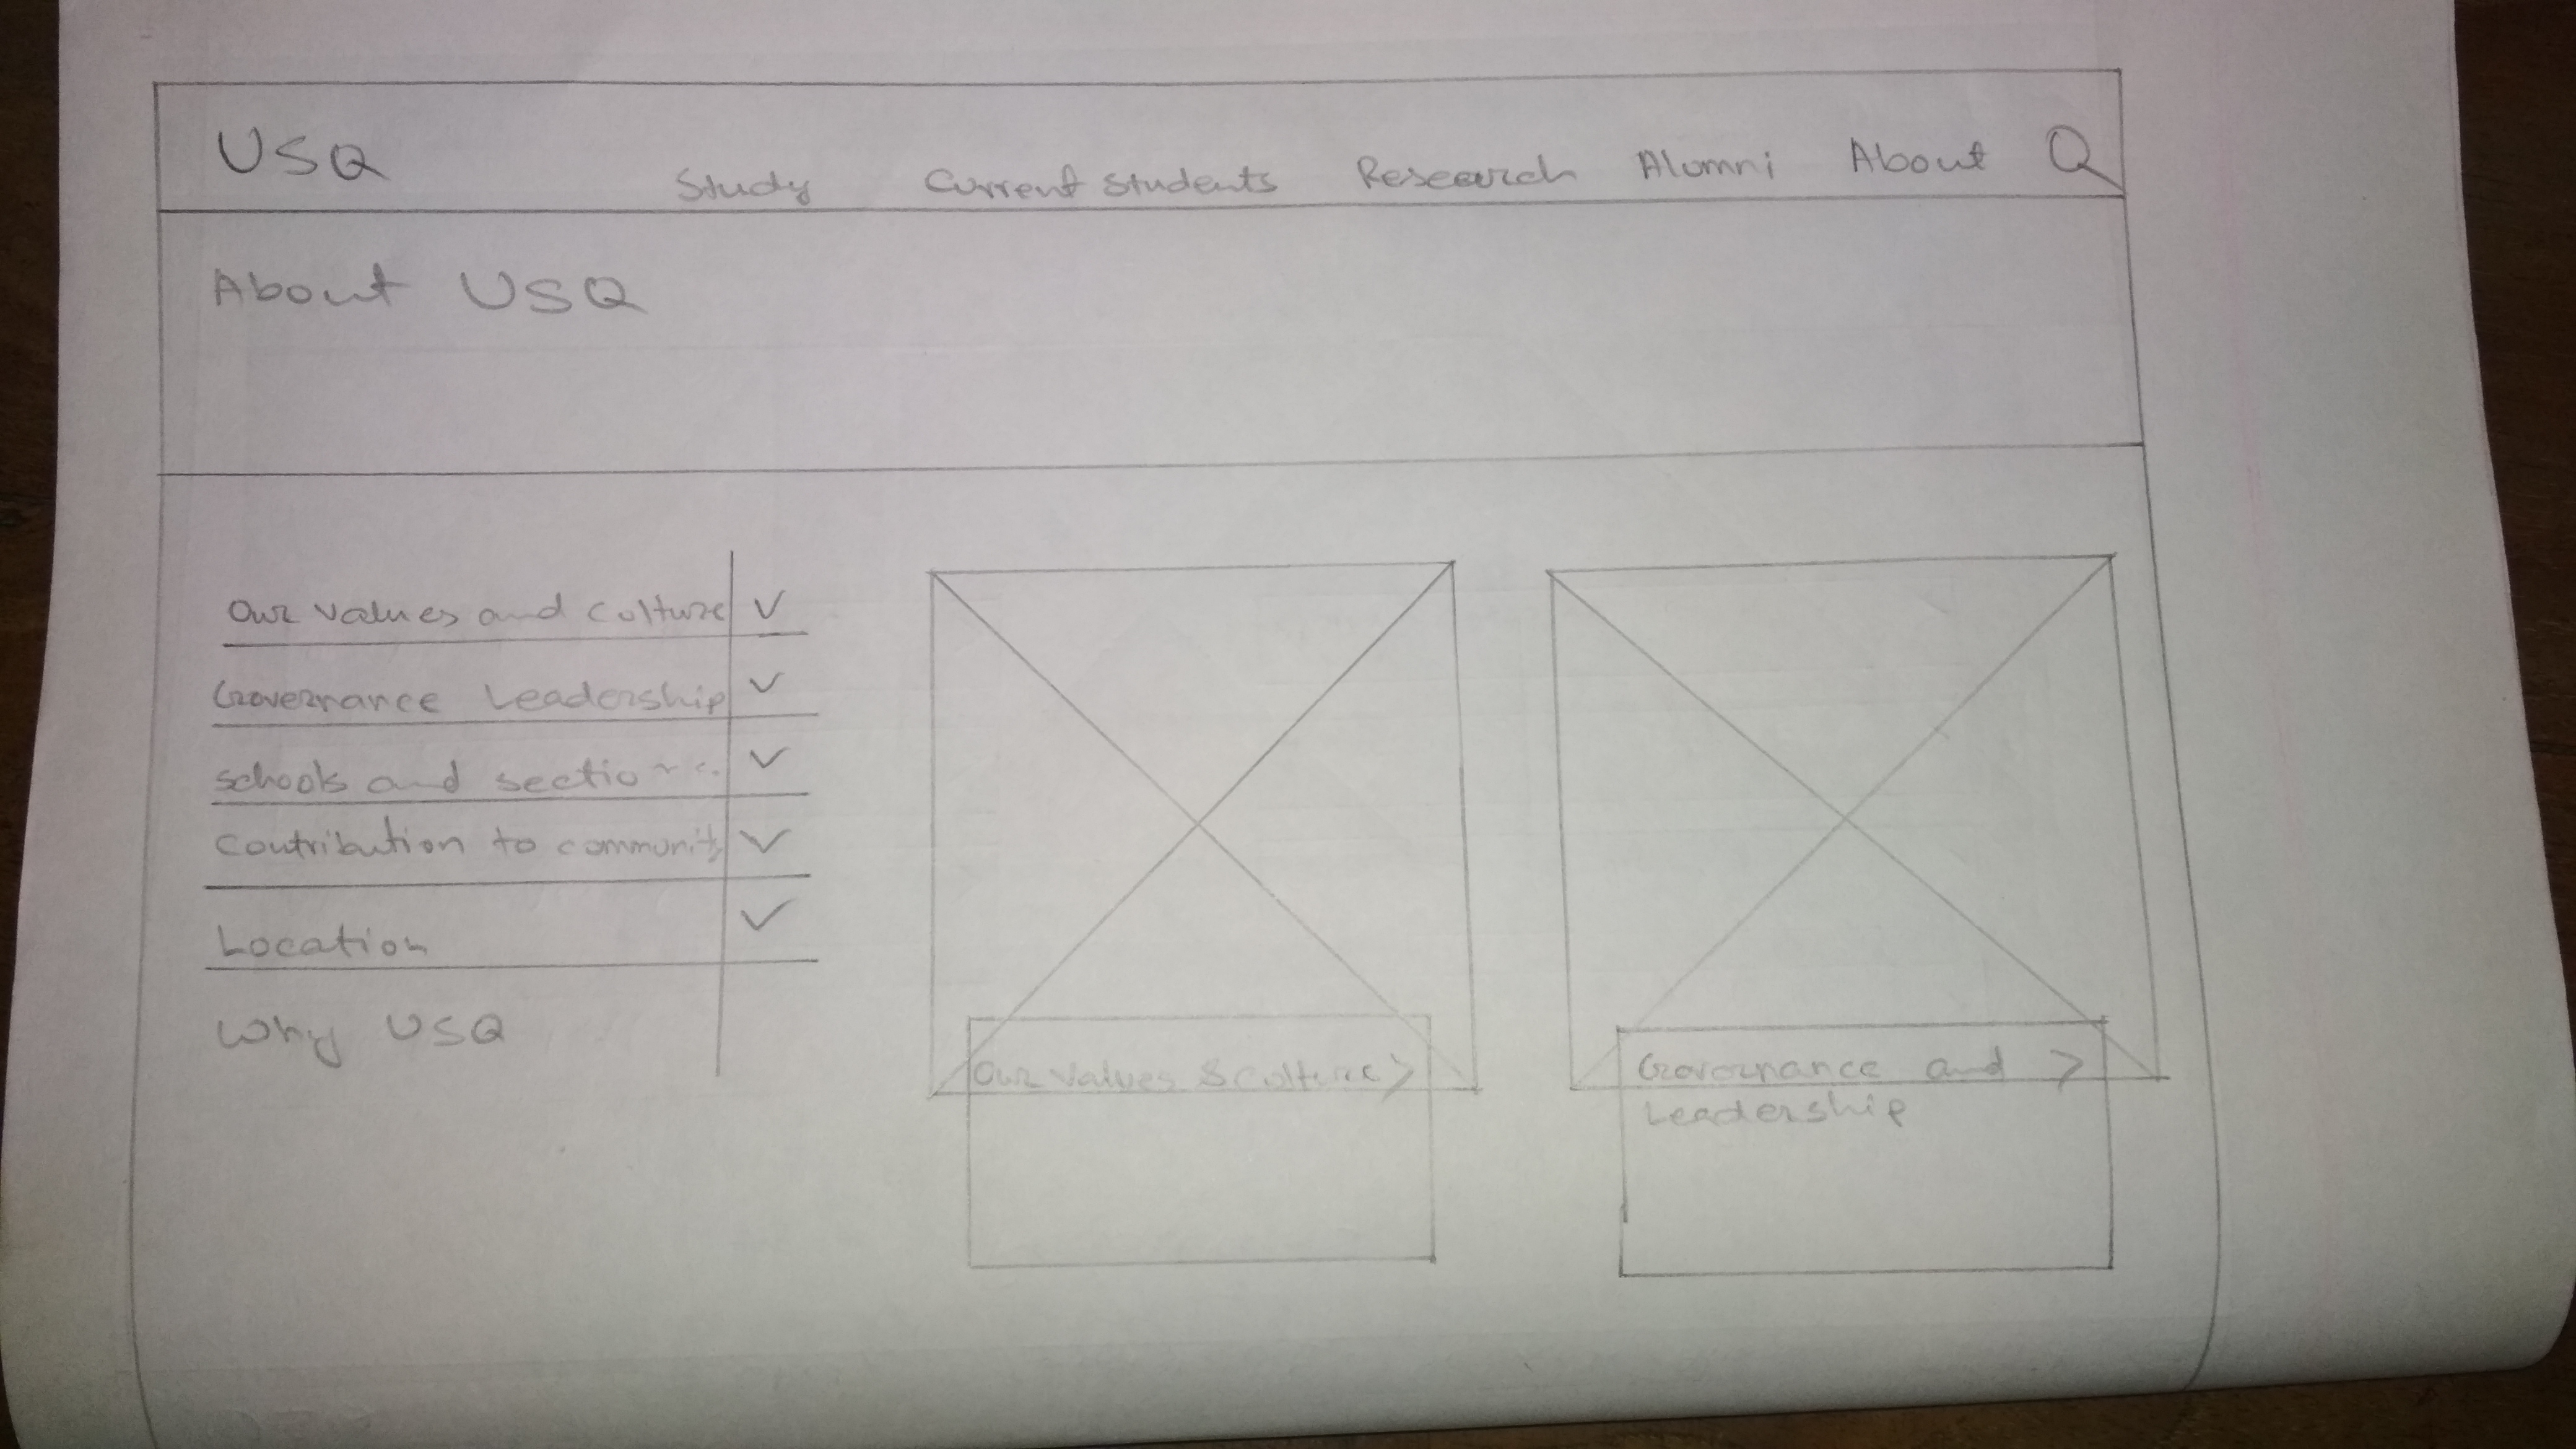 USQ Study Current Students Research Alumni About
About USQ
Our values and culture
Governance Leadership
schools and
Contribution to community
Location
Why USQ
Our values & culture >
Governance and >
Leadership